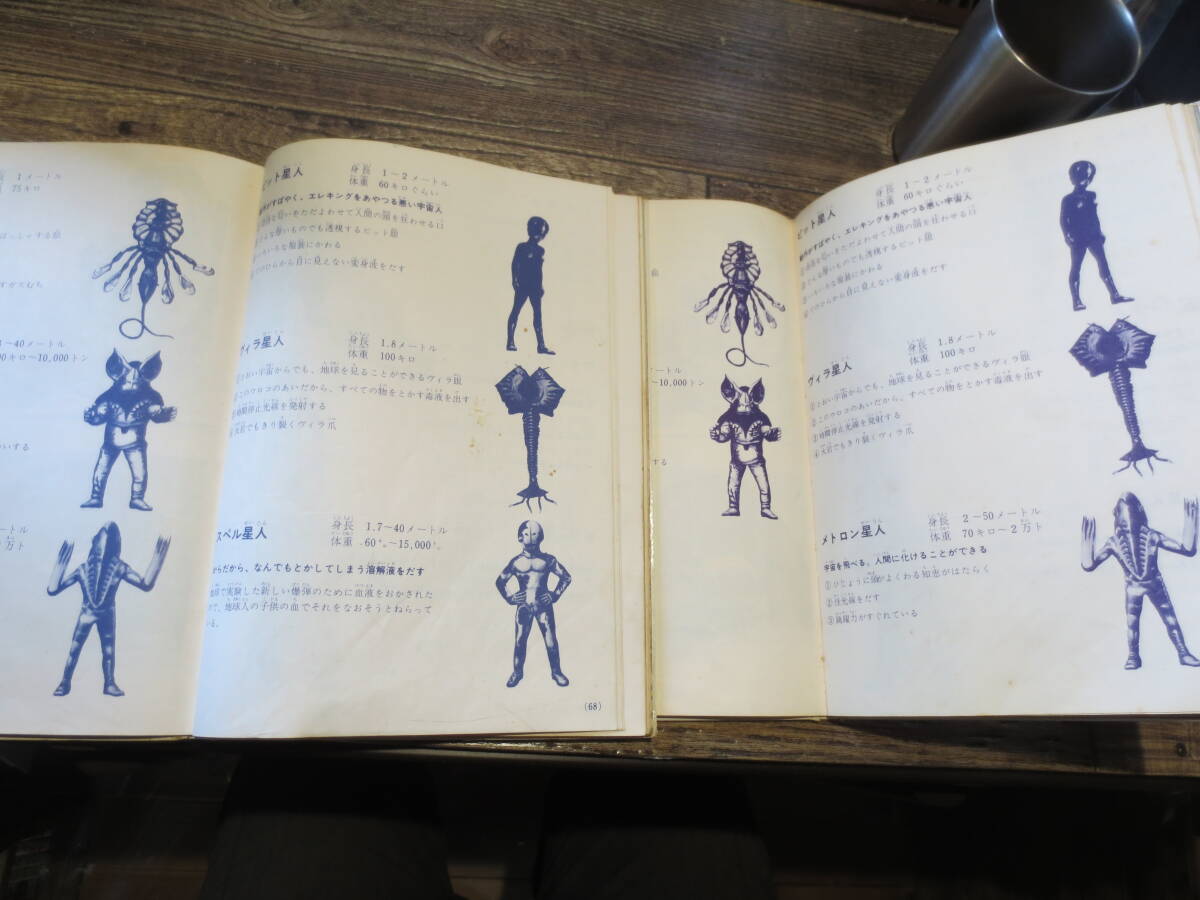 長 1メートル
重 25キロ
すがスむち
1～40メートル
00キロ～10,000トン
いする
メートル
万ト
ピット星人
身長 1～2メートル
体重 60キロぐらい
動作がすばやく、エレキングをあやつる悪い宇宙人
どんな厚いものでも透視するピット眼
いろいろな服装にかわる
てのひらから目に見えない変身液をだす
ヴィラ星人
身長 1.8メートル
体重 100キロ
①とおい宇宙からでも、地球を見ることができるヴィラ眼
②このウロコのあいだから、すべての物をとかす毒液を出す
③時間停止光線を発射する
④大岩でもきり裂くヴィラ爪
スペル星人
身長 1.7～40メートル
体重 60㌔～15,000㌧
からだから、なんでもとかしてしまう溶解液をだす
地球で実験した新しい爆弾のために血液をおかされた
ので、地球人の子供の血でそれをなおそうとねらって
いる。
(68)
メートル
～10,000トン
する
ピット星人
身長 1～2メートル
体重 60キロぐらい
動作がすばやく、エレキングをあやつる悪い宇宙人
②どんな厚いものでも透視するピット眼
③いろいろな服装にかわる
④てのひらから目に見えない変身液をだす
ヴィラ星人
身長 1.8メートル
体重 100キロ
①とおい宇宙からでも、地球を見ることができるヴィラ眼
②このウロコのあいだから、すべての物をとかす毒液を出す
③時間停止光線を発射する
④大岩でもきり裂くヴィラ爪
メトロン星人
身長 2～50メートル
体重 70キロ～2万ト
宇宙を飛べる。人間に化けることができる
①ひじょうに頭がよくわるい知恵がはたらく
②怪光線をだす
③跳躍力がすぐれている